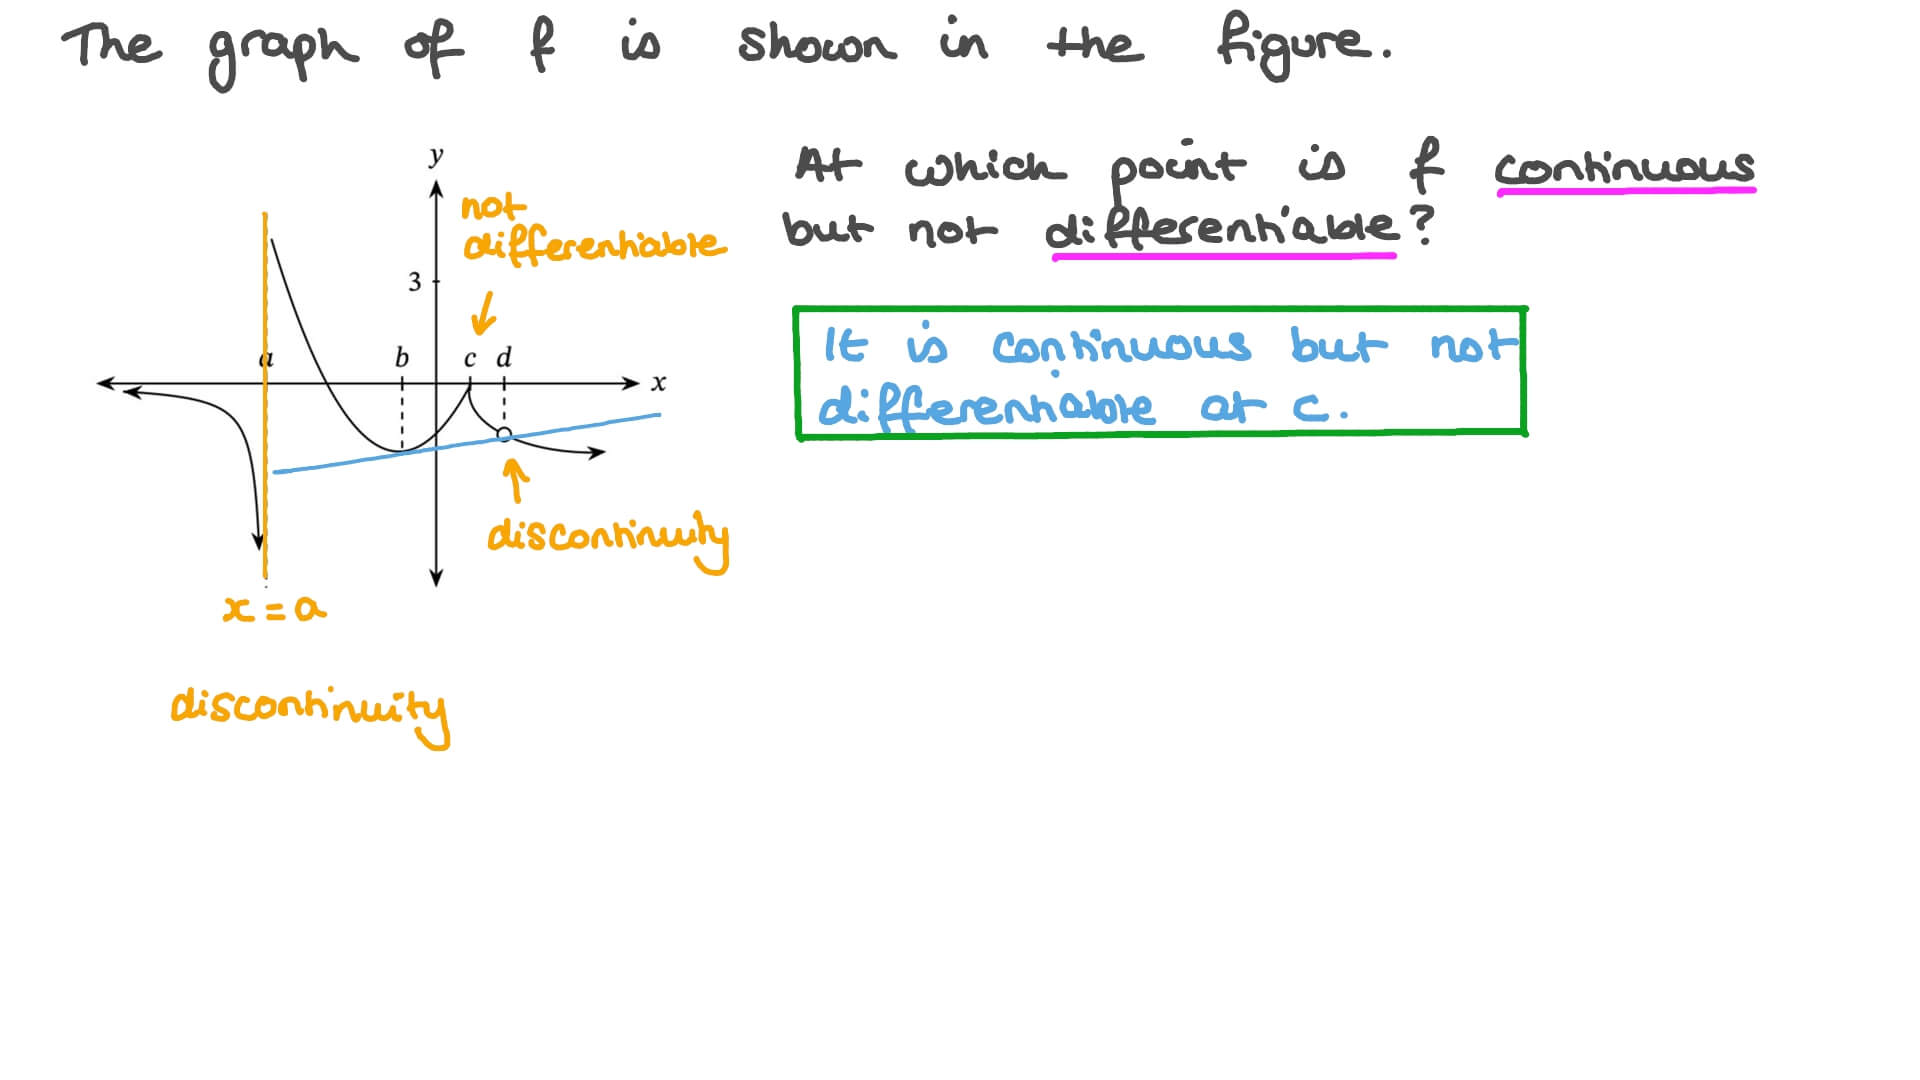 The graph of f is shown in the figure.
At which point is f continuous
but not differentiable?
y
not
differentiable
3
a
b
c
d
x
It is continuous but not
differentiable at c.
discontinuity
x = a
discontinuity